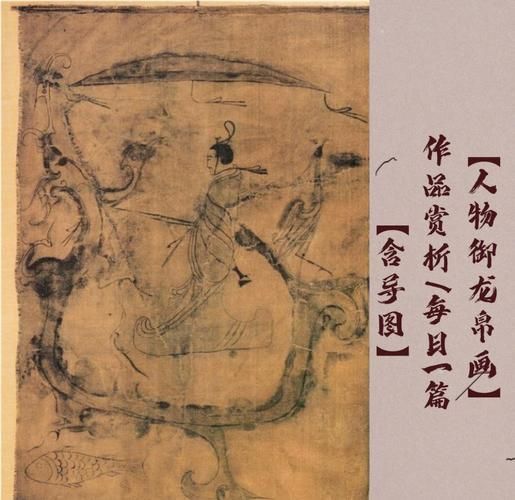 【人物御龙帛画】
作品赏析/每日一篇
【含导图】